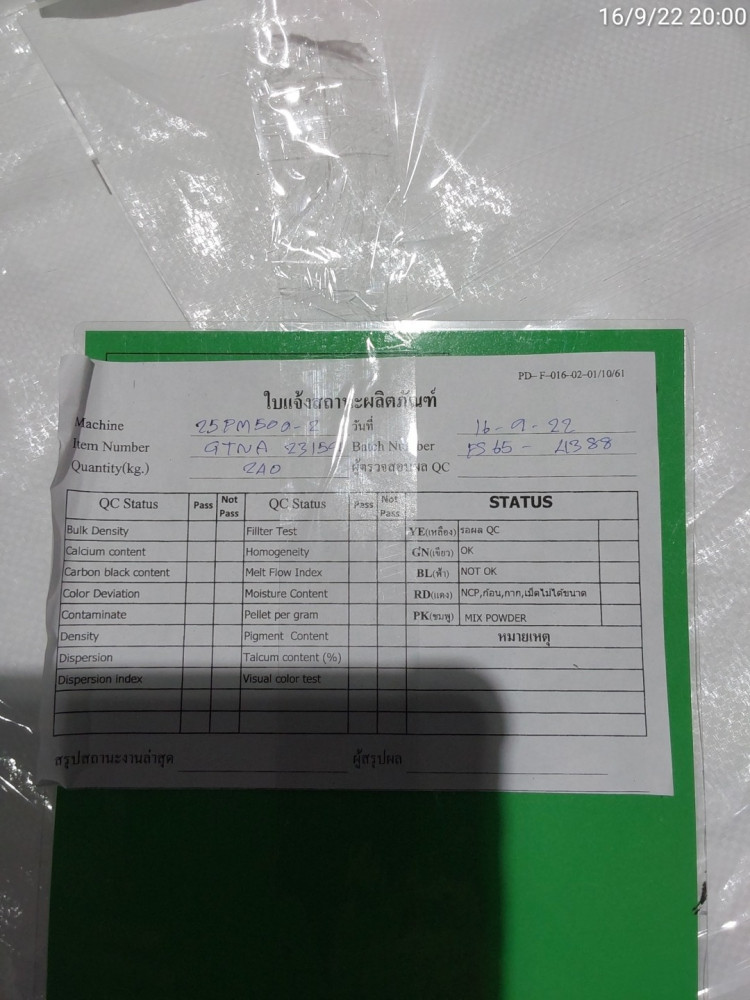 16/9/22 20:00
PD-F-016-02-01/10/61
ใบแจ้งสถานะผลิตภัณฑ์
Machine 25PM500-2 วันที่ 16-9-22
Item Number GTNA Batch Number PS65-4388
Quantity(kg.) 240 ผู้ตรวจสอบผล QC
QC Status Pass Not Pass QC Status Pass Not Pass STATUS
Bulk Density Fillter Test YE(เหลือง) รอผล QC
Calcium content Homogeneity GN(เขียว) OK
Carbon black content Melt Flow Index BL(ฟ้า) NOT OK
Color Deviation Moisture Content RD(แดง) NCP,ก้อน,กาก,เม็ดไม่ได้ขนาด
Contaminate Pellet per gram PK(ชมพู) MIX POWDER
Density Pigment Content หมายเหตุ
Dispersion Talcum content (%)
Dispersion index Visual color test
สรุปสถานะงานล่าสุด ผู้สรุปผล